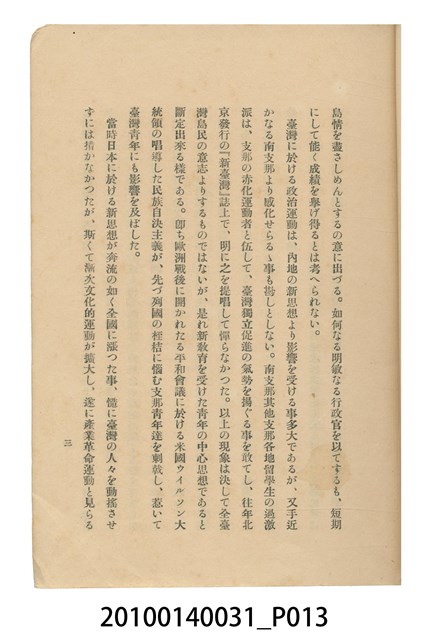 島情を盡さしめんとするの意に出づる。如何なる明敏なる行政官を以てするも、短期
にして能く成績を擧げ得るとは考へられない。
臺灣に於ける政治運動は、內地の新思想より影響を受ける事多大であるが、又手近
かなる南支那より感化せらるゝ事も尠しとしない。南支那其他支那各地留學生の過激
派は、支那の赤化運動者と伍して、臺灣獨立促進の氣勢を揚ぐる事を敢てし、往年北
京發行の『新臺灣』誌上で、明に之を提唱して憚らなかつた。以上の現象は決して全臺
灣島民の意志よりするものではないが、是れ新敎育を受けた靑年の中心思想であると
斷定出來る樣である。卽ち歐洲戰後に開かれたる平和會議に於ける米國ウイルソン大
統領の唱導した民族自決主義が、先づ列國の桎梏に惱む支那靑年達を刺戟し、惹いて
臺灣靑年にも影響を及ぼした。
當時日本に於ける新思想が奔流の如く全國に漲つた事、慥に臺灣の人々を動搖させ
ずには措かなかつたが、斯くて漸次文化的運動が擴大し、遂に產業革命運動と見らる
三
20100140031_P013